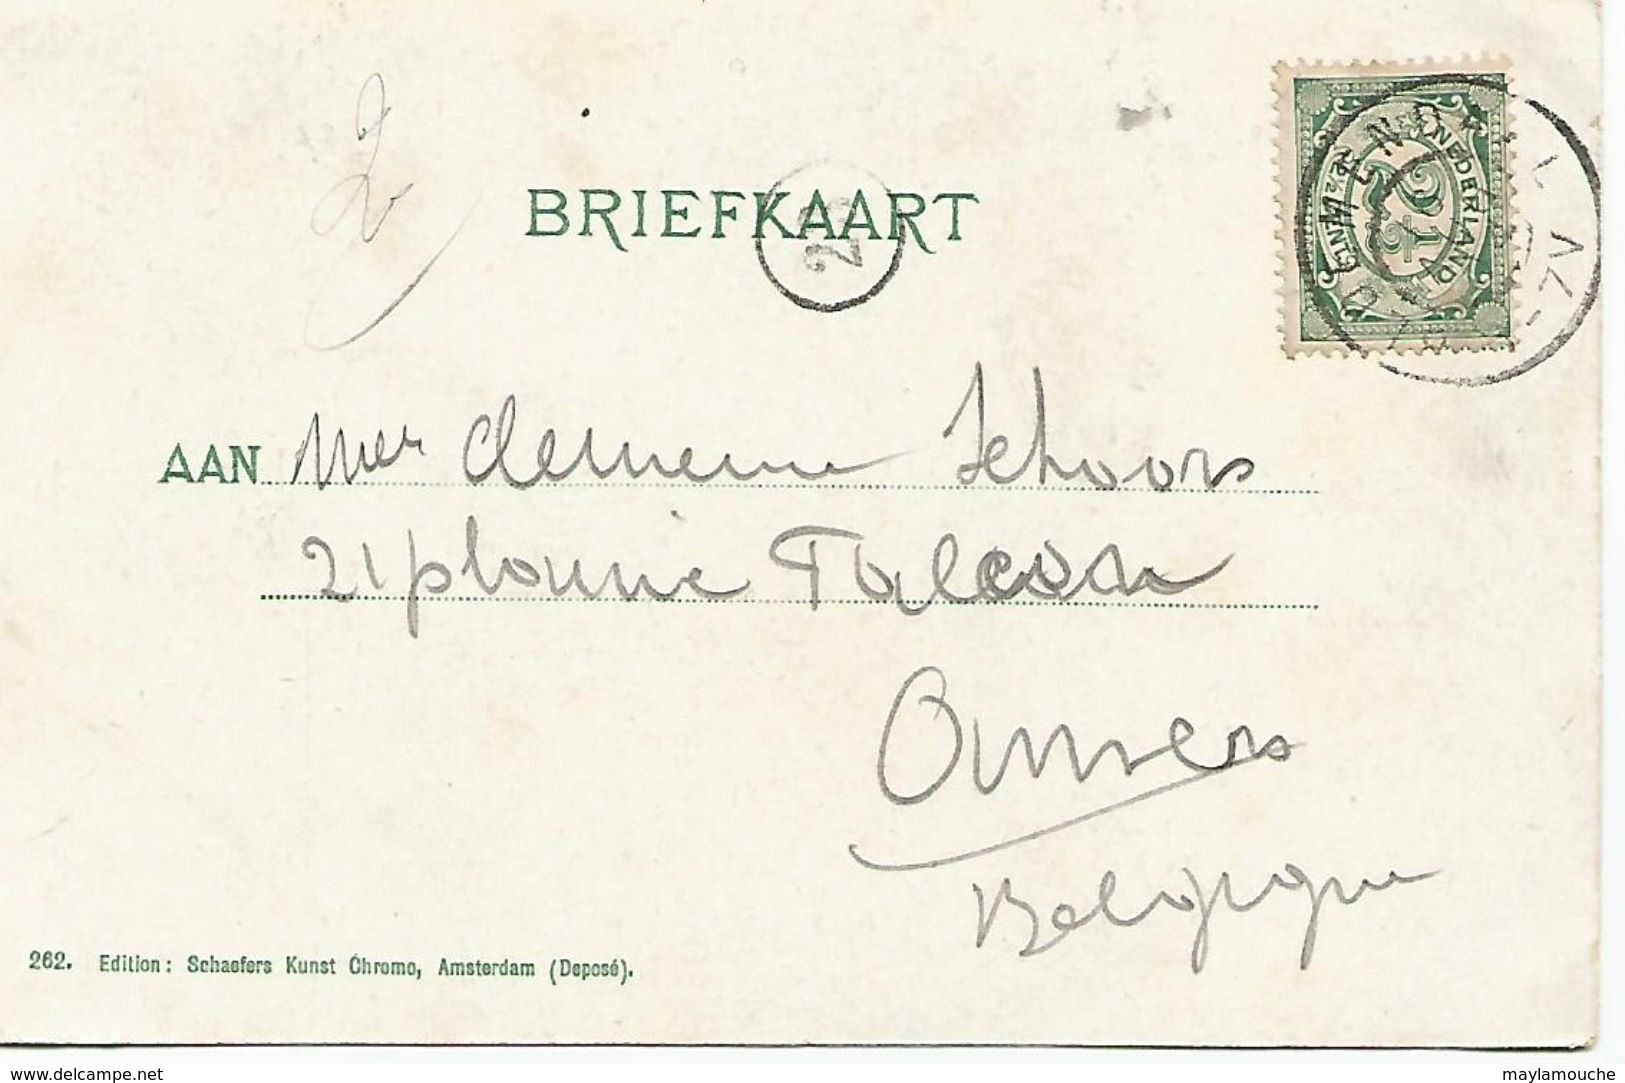 BRIEFKAART
2
NEDERLAND
2½
CENT
AAN Mer Clemence Schoors
21 plaine Falcon
Anvers
Belgique
262. Edition: Schaefers Kunst Chromo, Amsterdam (Deposé).
www.delcampe.net
maylamouche